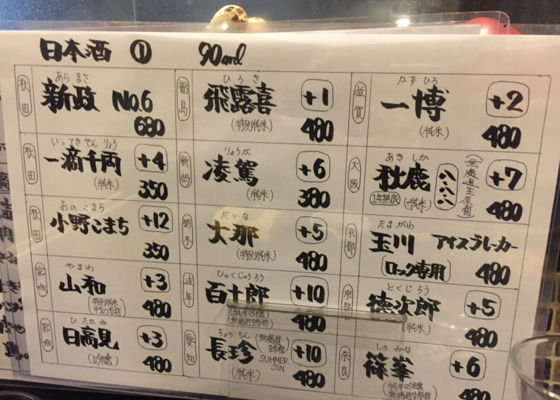 日本酒 ① 90ml
秋田 あらまさ
新政 No.6
680
福島 ひろき
飛露喜 +1
(特別純米) 480
滋賀 かずひろ
一博 +2
(純米) 480
秋田 いってきせんりょう
一滴千両 +4
(純米) 350
りょうが
凌駕 +6
(純米) 380
大阪 あきしか
秋鹿 +7
(純米) 480
秋田 おのこまち
小野こまち +12
350
栃木 だいな
大那 +5
(特別純米) 480
京都 たまがわ
玉川 アイスブレーカー
(ロック専用) 480
宮城 やまわ
山和 +3
480
岐阜 ひゃくじゅうろう
百十郎 +10
480
京都 とくじろう
徳次郎 +5
480
宮城 ひたかみ
日高見 +3
(吟醸) 480
愛知 ちょうちん
長珍 +10
SUMMER
JIN
(純米) 480
奈良 しのみね
篠峯 +6
480